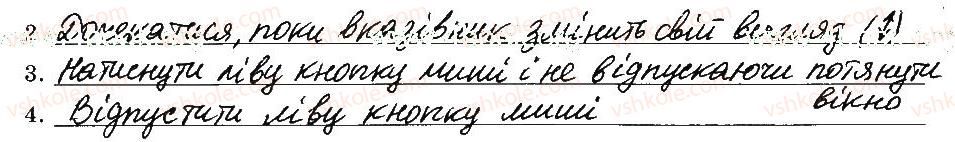 2. Дочекатися, поки вказівник змінить свій вигляд (↕)
3. Натиснути ліву кнопку миші і не відпускаючи потянути
вікно
4. Відпустити ліву кнопку миші